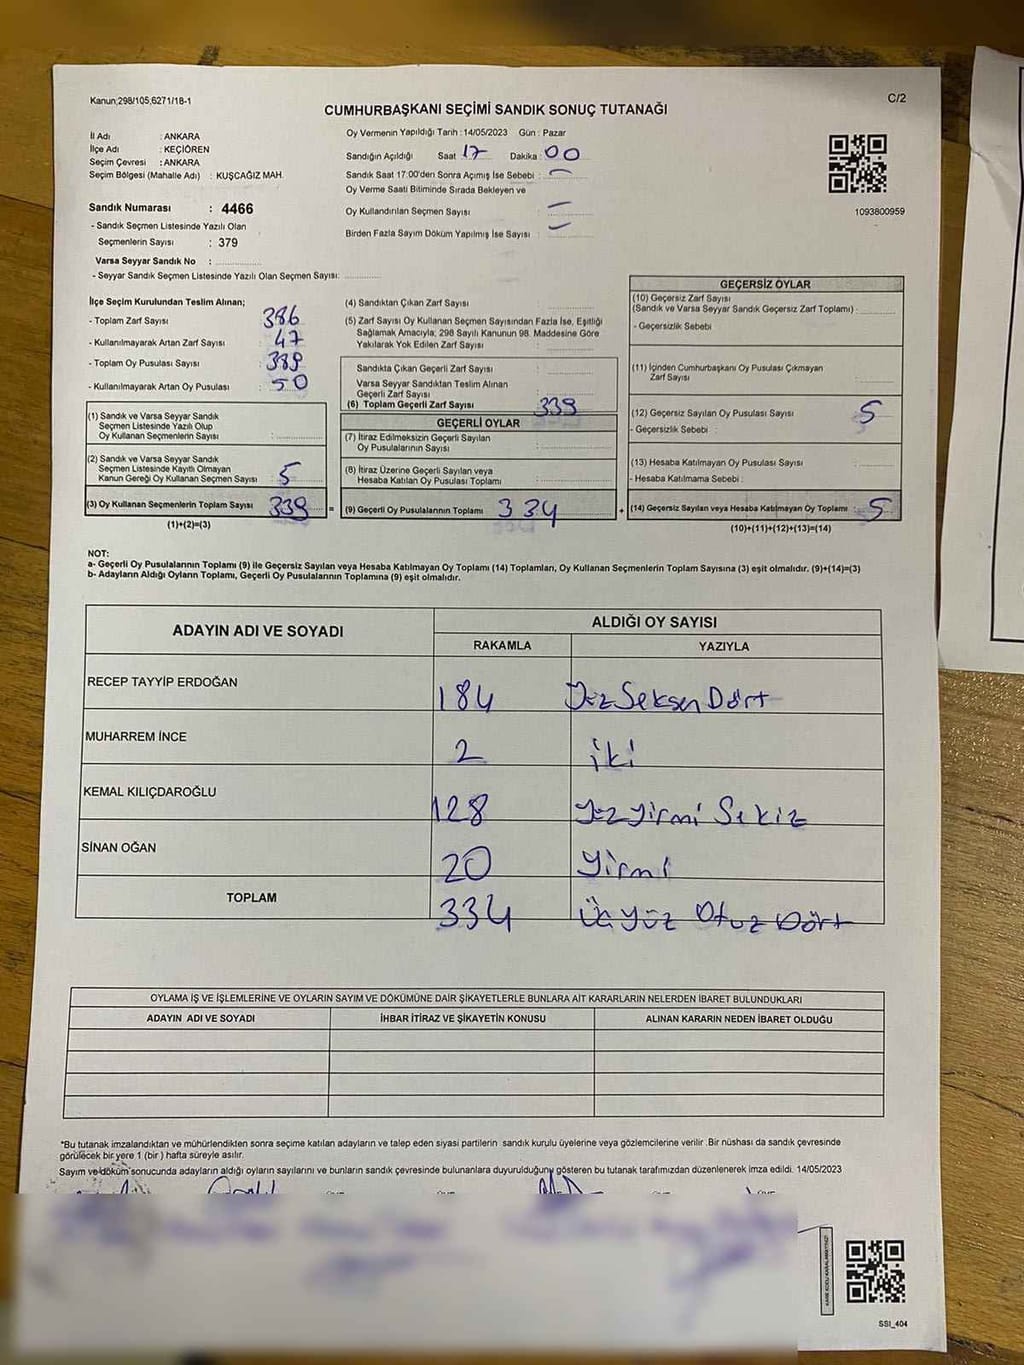 Kanun;298/105;6271/18-1
C/2
CUMHURBAŞKANI SEÇİMİ SANDIK SONUÇ TUTANAĞI
İl Adı : ANKARA
İlçe Adı : KEÇİÖREN
Seçim Çevresi : ANKARA
Seçim Bölgesi (Mahalle Adı) : KUŞCAĞIZ MAH.
Sandık Numarası : 4466
- Sandık Seçmen Listesinde Yazılı Olan
Seçmenlerin Sayısı : 379
Varsa Seyyar Sandık No :
- Seyyar Sandık Seçmen Listesinde Yazılı Olan Seçmen Sayısı:
Oy Vermenin Yapıldığı Tarih : 14/05/2023 Gün : Pazar
Sandığın Açıldığı Saat : 17 Dakika : 00
Sandık Saat 17:00'den Sonra Açımış İse Sebebi : -
Oy Verme Saati Bitiminde Sırada Bekleyen ve
Oy Kullandırılan Seçmen Sayısı : -
Birden Fazla Sayım Döküm Yapılmış İse Sayısı : -
1093800959
İlçe Seçim Kurulundan Teslim Alınan;
- Toplam Zarf Sayısı : 386
- Kullanılmayarak Artan Zarf Sayısı : 47
- Toplam Oy Pusulası Sayısı : 389
- Kullanılmayarak Artan Oy Pusulası : 50
(1) Sandık ve Varsa Seyyar Sandık
Seçmen Listesinde Yazılı Olup
Oy Kullanan Seçmenlerin Sayısı :
(2) Sandık ve Varsa Seyyar Sandık
Seçmen Listesinde Kayıtlı Olmayan
Kanun Gereği Oy Kullanan Seçmen Sayısı : 5
(3) Oy Kullanan Seçmenlerin Toplam Sayısı : 339
(1)+(2)=(3)
(4) Sandıktan Çıkan Zarf Sayısı :
(5) Zarf Sayısı Oy Kullanan Seçmen Sayısından Fazla İse, Eşitliği
Sağlamak Amacıyla, 298 Sayılı Kanunun 98. Maddesine Göre
Yakılarak Yok Edilen Zarf Sayısı :
Sandıkta Çıkan Geçerli Zarf Sayısı :
Varsa Seyyar Sandıktan Teslim Alınan
Geçerli Zarf Sayısı :
(6) Toplam Geçerli Zarf Sayısı : 339
GEÇERLİ OYLAR
(7) İtiraz Edilmeksizin Geçerli Sayılan
Oy Pusulalarının Sayısı :
(8) İtiraz Üzerine Geçerli Sayılan veya
Hesaba Katılan Oy Pusulası Toplamı :
= (9) Geçerli Oy Pusulalarının Toplamı : 334
GEÇERSİZ OYLAR
(10) Geçersiz Zarf Sayısı
(Sandık ve Varsa Seyyar Sandık Geçersiz Zarf Toplamı) :
- Geçersizlik Sebebi :
(11) İçinden Cumhurbaşkanı Oy Pusulası Çıkmayan
Zarf Sayısı :
(12) Geçersiz Sayılan Oy Pusulası Sayısı : 5
- Geçersizlik Sebebi :
(13) Hesaba Katılmayan Oy Pusulası Sayısı :
- Hesaba Katılmama Sebebi :
+ (14) Geçersiz Sayılan veya Hesaba Katılmayan Oy Toplamı : 5
(10)+(11)+(12)+(13)=(14)
NOT:
a- Geçerli Oy Pusulalarının Toplamı (9) ile Geçersiz Sayılan veya Hesaba Katılmayan Oy Toplamı (14) Toplamları, Oy Kullanan Seçmenlerin Toplam Sayısına (3) eşit olmalıdır. (9)+(14)=(3)
b- Adayların Aldığı Oyların Toplamı, Geçerli Oy Pusulalarının Toplamına (9) eşit olmalıdır.
ADAYIN ADI VE SOYADI ALDIĞI OY SAYISI
RAKAMLA YAZIYLA
RECEP TAYYİP ERDOĞAN 184 Yüz Seksen Dört
MUHARREM İNCE 2 iki
KEMAL KILIÇDAROĞLU 128 Yüz yirmi Sekiz
SİNAN OĞAN 20 yirmi
TOPLAM 334 Üç yüz Otuz Dört
OYLAMA İŞ VE İŞLEMLERİNE VE OYLARIN SAYIM VE DÖKÜMÜNE DAİR ŞİKAYETLERLE BUNLARA AİT KARARLARIN NELERDEN İBARET BULUNDUKLARI
ADAYIN ADI VE SOYADI İHBAR İTİRAZ VE ŞİKAYETİN KONUSU ALINAN KARARIN NEDEN İBARET OLDUĞU
*Bu tutanak imzalandıktan ve mühürlendikten sonra seçime katılan adayların ve talep eden siyasi partilerin sandık kurulu üyelerine veya gözlemcilerine verilir .Bir nüshası da sandık çevresinde
görülecek bir yere 1 (bir ) hafta süreyle asılır.
Sayım ve döküm sonucunda adayların aldığı oyların sayılarını ve bunların sandık çevresinde bulunanlara duyurulduğunu gösteren bu tutanak tarafımızdan düzenlenerek imza edildi. 14/05/2023
SSI_404